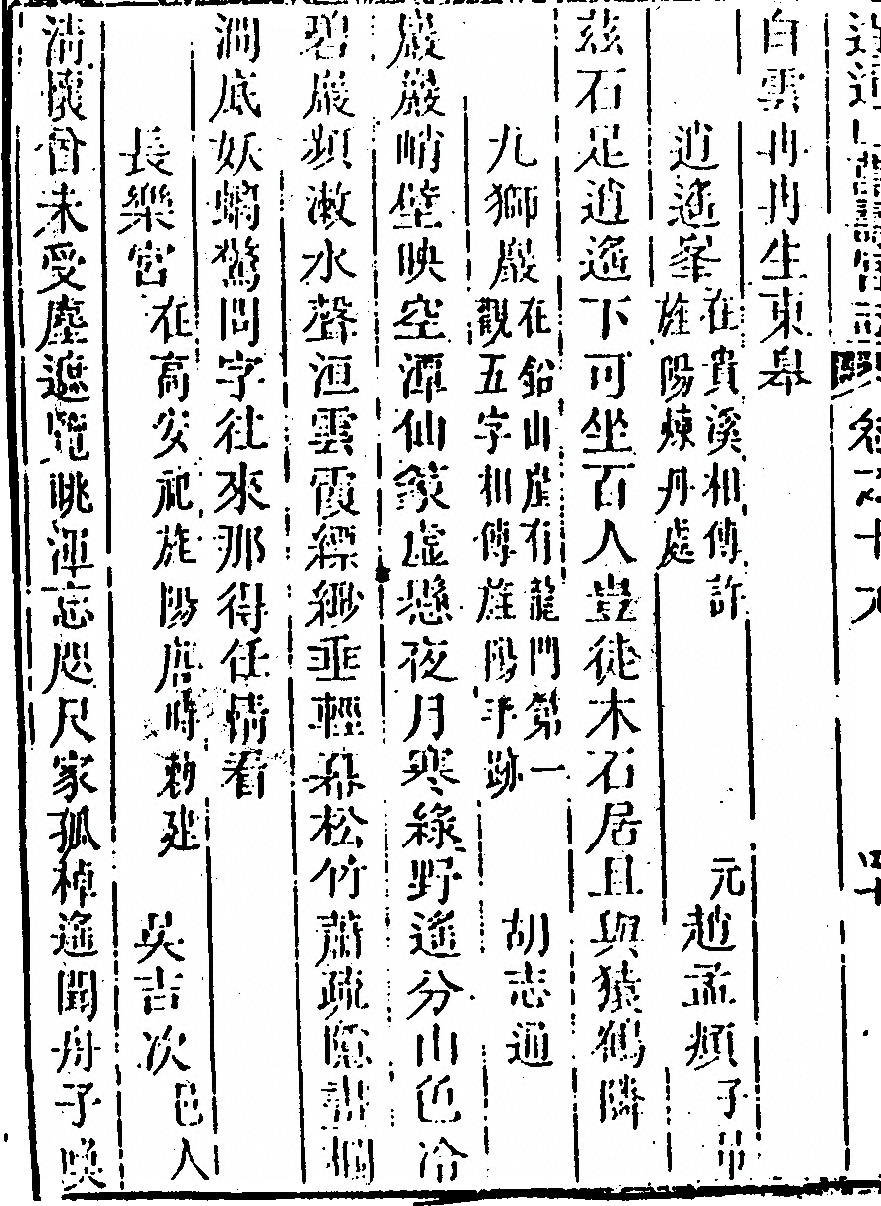 逍遥山萬壽宮志 卷之十九 四十
白雲冉冉生東皋
逍遥峯 在貴溪相傳許旌陽煉丹處 元 趙孟頫 子昻
茲石足逍遥下可坐百人豈徒木石居且與猿鶴隣
九獅巖 在鉛山崖有龍門第一觀五字相傳旌陽手跡 胡志通
巖巖峭壁映空潭仙籙虛懸夜月寒綠野遥分山色冷
碧巖頻漱水聲洹雲霞縹緲垂輕幕松竹蕭疏隱畫欄
澗底妖螭驚問字往來那得任情看
長樂宮 在高安祀旌陽唐時勅建 吳吉次 邑人
清懷曾未受塵遮覽眺渾忘咫尺家孤棹遥聞舟子喚